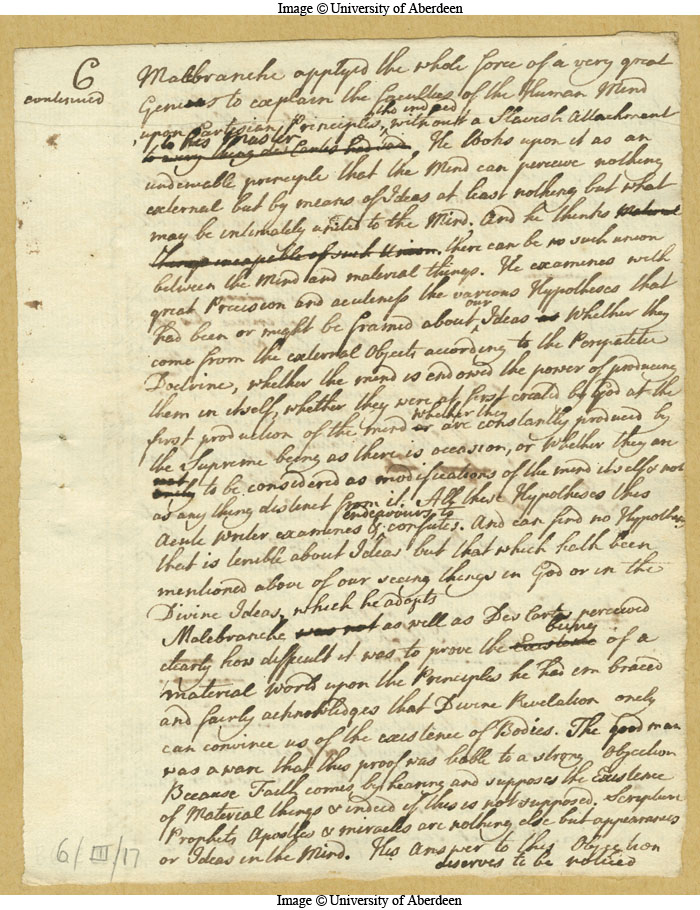 Image © University of Aberdeen
6
continued
Malebranche applyed the whole force of a very great
Genius to explain the faculties of the Human Mind
upon Cartesian Principles, tho indeed without a Slavish Attachment
to his Master
to every thing des Cartes had said. He looks upon it as an
undeniable principle that the Mind can perceive nothing
external but by means of Ideas at least nothing but what
may be intimately united to the Mind. And he thinks material
things incapable of such Union. there can be no such union
between the Mind and material things. He examines with
great Precision and acuteness the various Hypotheses that
had been or might be framed about our Ideas as Whether they
come from the external Objects according to the Peripatetic
Doctrine, whether the mind is endowed the power of producing
them in itself, whether they were at first created by God at the
first production of the mind or whether they are constantly produced by
the Supreme being as there is occasion, or Whether they are
not
only to be considered as modifications of the mind itself & not
as any thing distinct from it. All these Hypotheses this
Acute Writer examines & endeavours to confutes. And can find no Hypothesis
that is tenible about Ideas but that which hath been
mentioned above of our seeing things in God or in the
Divine Ideas, which he adopts
Malebranche was not as well as Des Cartes perceived
clearly how difficult it was to prove the Existence being of a
material World upon the Principles he had embraced
and fairly acknowledges that Divine Revelation onely
can convince us of the existence of Bodies. The good man
was aware that this proof was liable to a strong Objection
Because Faith comes by hearing and supposes the Existence
of Material things & indeed if this is not supposed, Scripture
Prophets Apostles & miracles are nothing else but appearances
or Ideas in the Mind. His Answer to this Objection
deserves to be noticed
6/III/17
Image © University of Aberdeen